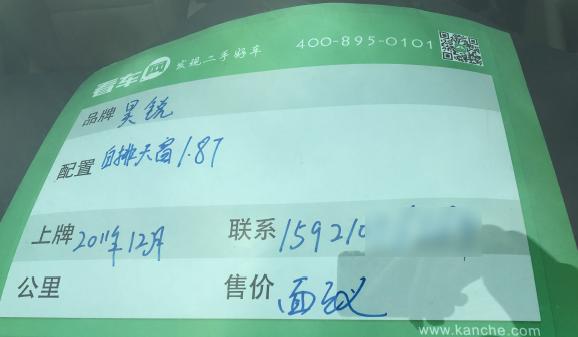 看车网 发现二手好车 400-895-0101
品牌 昊锐
配置 自排天窗1.8T
上牌 2011年12月 联系 159210
公里 售价 面议
www.kanche.com